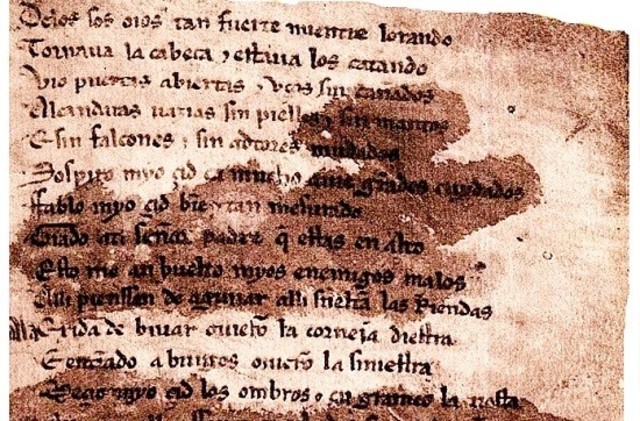 Delos sos oios tan fuerte mientre lorando
Tornaua la cabeça ⁊ estaua los catando
Vio puertas abiertas ⁊ vços sin cañados
Alcandaras uazias sin pielles ⁊ sin mantos
E sin falcones ⁊ sin adtores mudados
Sospiro myo çid ca mucho auie grãdes cuydados
Fablo myo çid bien ⁊ tan mesurado
Grado ati señor padre q̃ estas en alto
Esto me an buelto myos enemigos malos
Alli pienssan de aguiiar alli sueltã las Riendas
ala Exida de biuar ouierõ la corneia diestra
E entrãdo a burgos ouierõ la siniestra
Meçio myo çid los ombros ⁊ engrameo la tiesta